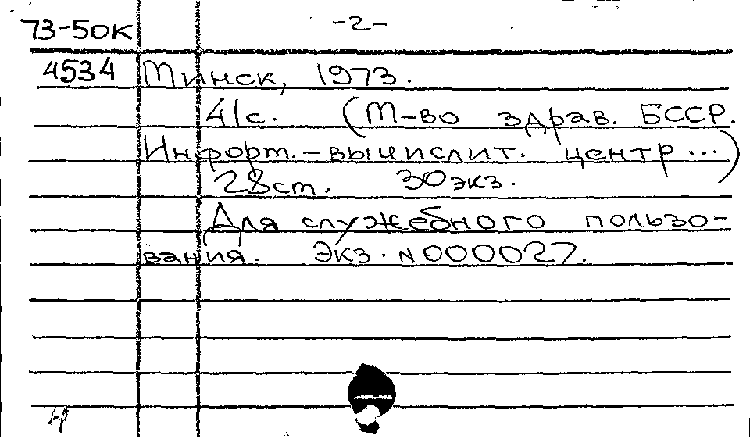 73-50К -2-
4534 Минск, 1973.
41с. (М-во здрав. БССР.
Информ.-вычислит. центр...)
28ст. 30экз.
Для служебного пользо-
вания. Экз. N000027.